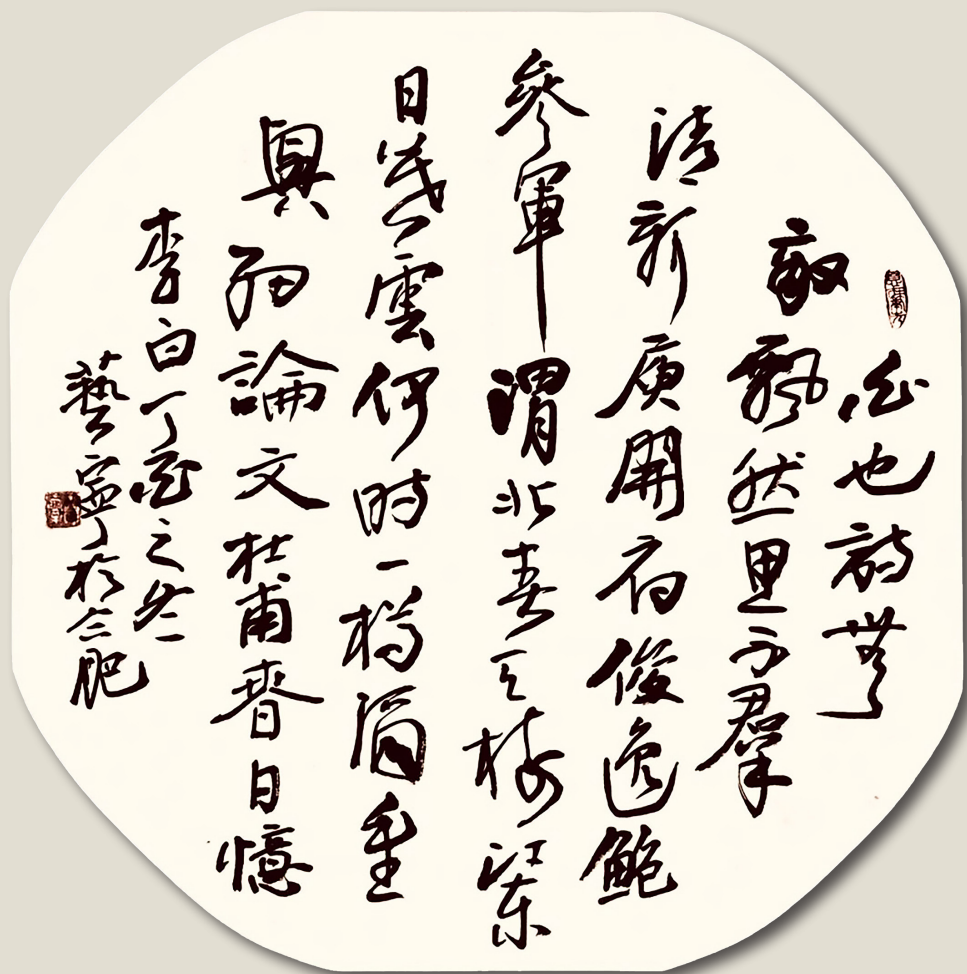 白也詩無
敵飄然思不羣
清新庾開府俊逸鮑
參軍渭北春天樹江東
日暮雲何時一樽酒重
與細論文杜甫春日憶
李白丁酉之冬
藝寧於合肥